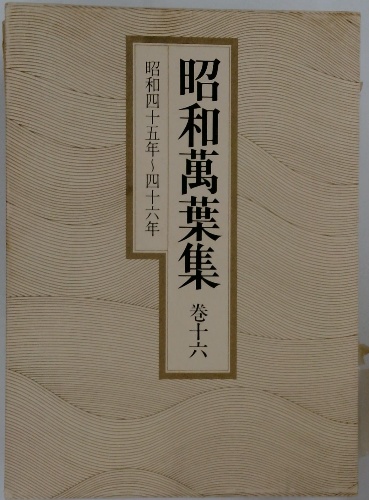 昭和萬葉集 巻十六
昭和四十五年〜四十六年